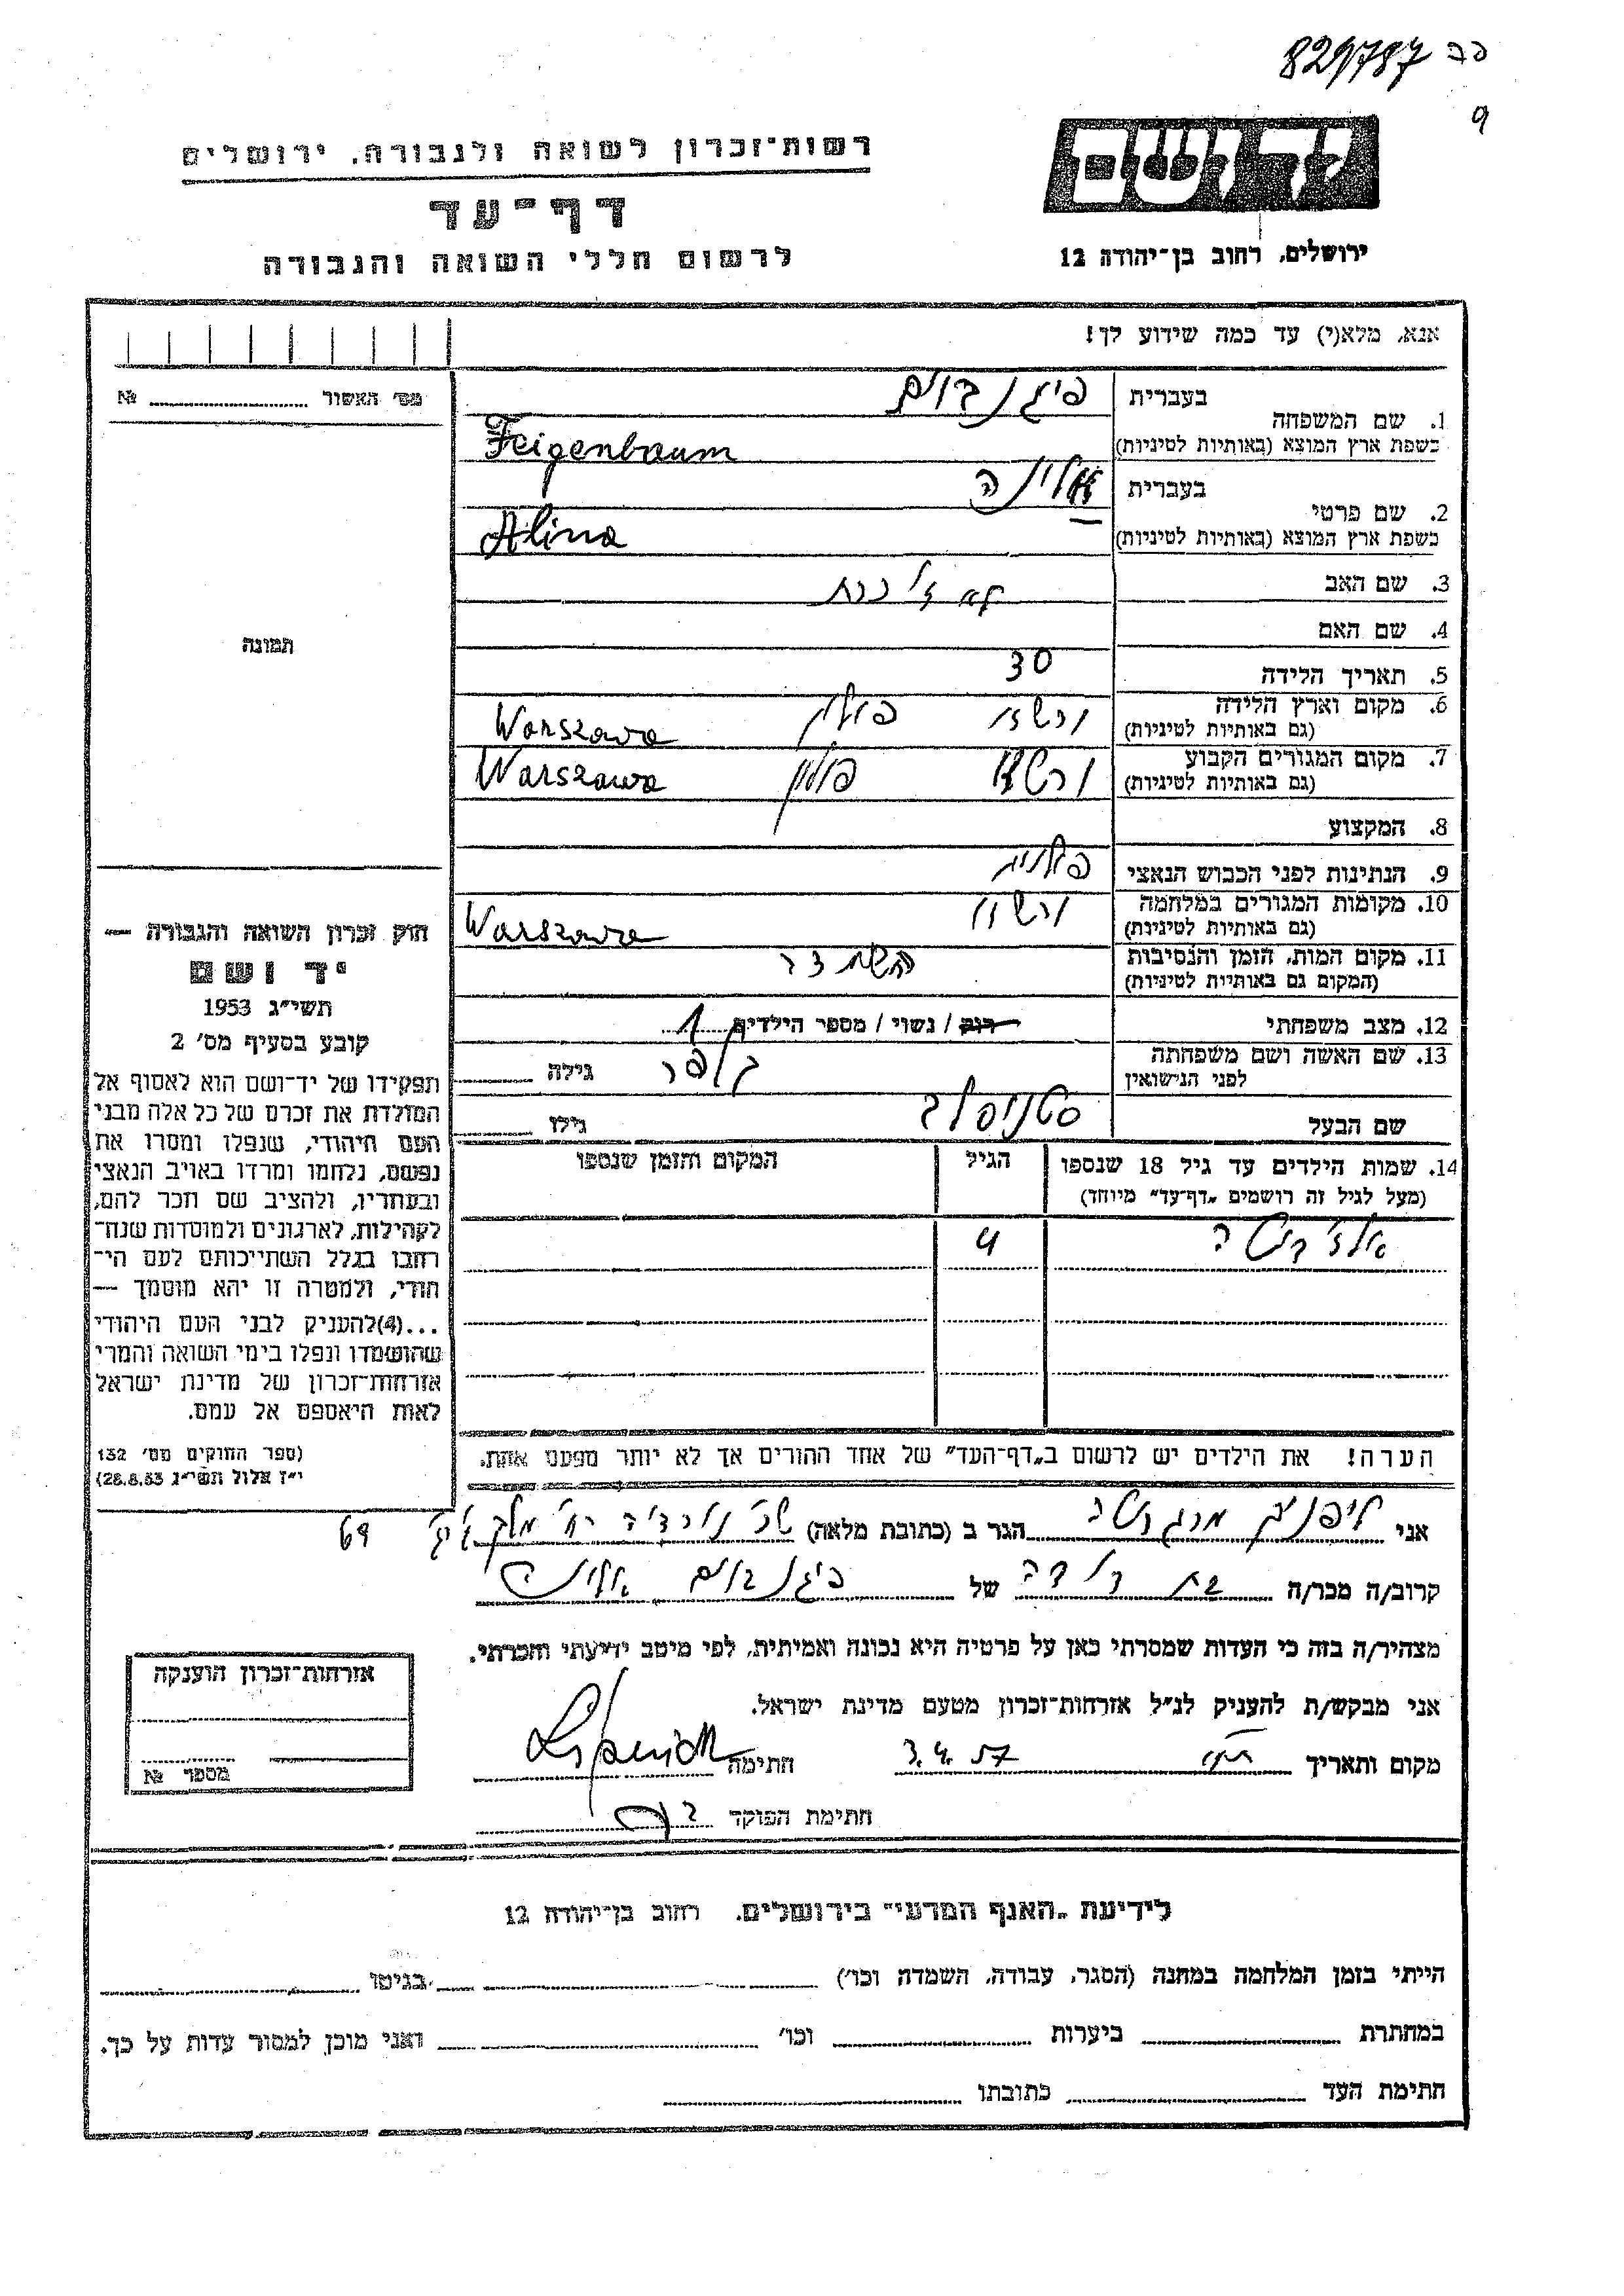 829787 כב
9
יד ושם
ירושלים, רחוב בן־יהודה 12
רשות־זכרון לשואה ולגבורה, ירושלים
דף־עד
לרשום חללי השואה והגבורה
אנא, מלא(י) עד כמה שידוע לך!
מס׳ האשור № 
תמונה
1. שם המשפחה
בעברית פיגנבוים
בשפת ארץ המוצא (באותיות לטיניות) Feigenbaum
2. שם פרטי
בעברית אלינה
בשפת ארץ המוצא (באותיות לטיניות) Alina
3. שם האב לא
4. שם האם
5. תאריך הלידה 30
6. מקום וארץ הלידה ורשה פולין Warszawa
(גם באותיות לטיניות)
7. מקום המגורים הקבוע ורשה פולין Warszawa
(גם באותיות לטיניות)
8. המקצוע
9. הנתינות לפני הכבוש הנאצי פולנית
10. מקומות המגורים במלחמה ורשה Warszawa
(גם באותיות לטיניות)
11. מקום המות, הזמן והנסיבות
(המקום גם באותיות לטיניות)
12. מצב משפחתי רווק / נשוי / מספר הילדים 1
13. שם האשה ושם משפחתה
לפני הנישואין גילה
שם הבעל סטניסלב גילו
14. שמות הילדים עד גיל 18 שנספו הגיל המקום והזמן שנספו
(מעל לגיל זה רושמים „דף־עד״ מיוחד)
אלז׳ביטה 4
הערה! את הילדים יש לרשום ב„דף־העד״ של אחד ההורים אך לא יותר מפעם אחת.
חוק זכרון השואה והגבורה —
יד ושם
תשי״ג 1953
קובע בסעיף מס׳ 2
תפקידו של יד־ושם הוא לאסוף אל
המולדת את זכרם של כל אלה מבני
העם היהודי, שנפלו ומסרו את
נפשם, נלחמו ומרדו באויב הנאצי
ובעוזריו, ולהציב שם וזכר להם,
לקהילות, לארגונים ולמוסדות שנח־
רבו בגלל השתייכותם לעם הי־
הודי, ולמטרה זו יהא מוסמך —
...(4)להעניק לבני העם היהודי
שהושמדו ונפלו בימי השואה והמרי
אזרחות־זכרון של מדינת ישראל
לאות היאספם אל עמם.
(ספר החוקים מס׳ 132
י״ז אלול תשי״ג 28.8.53)
אני ליפניצקי מרגריטה הגר ב (כתובת מלאה) שכ׳ נורדיה רח׳ 69
קרוב/ה מכר/ה בת דודה של פיגנבוים אלינה
מצהיר/ה בזה כי העדות שמסרתי כאן על פרטיה היא נכונה ואמיתית, לפי מיטב ידיעתי והכרתי.
אני מבקש/ת להעניק לנ״ל אזרחות־זכרון מטעם מדינת ישראל.
מקום ותאריך 3.4.57 חתימה
חתימת הפוקד
אזרחות־זכרון הוענקה
מספר №
לידיעת „האגף המדעי״ בירושלים, רחוב בן־יהודה 12
הייתי בזמן המלחמה במחנה (הסגר, עבודה, השמדה וכו׳) בגיטו
במחתרת ביערות וכו׳ ואני מוכן למסור עדות על כך.
חתימת העד כתובתו